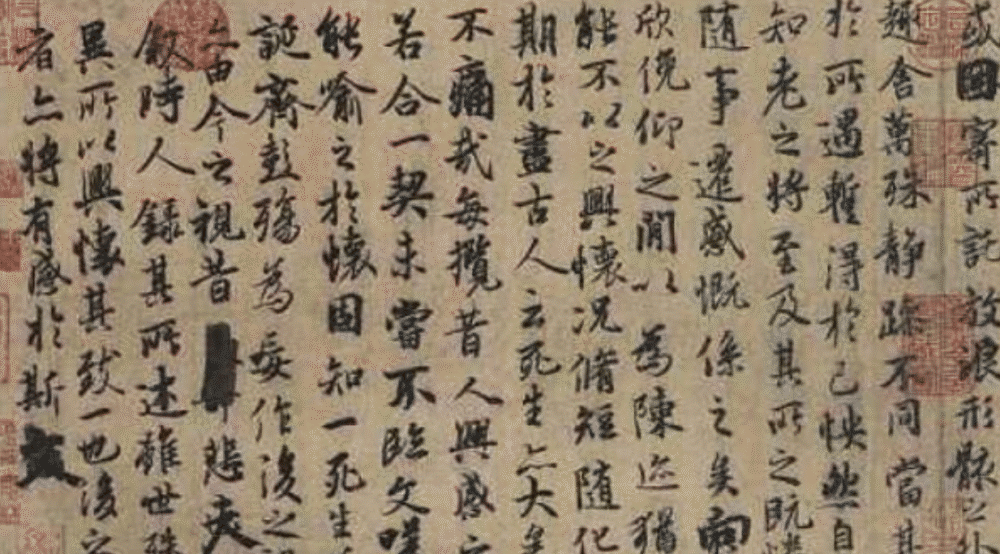 或因寄所託放浪形骸之外
趣舍萬殊靜躁不同當其
於所遇蹔得於己怏然自
知老之將至及其所之既惓
隨事遷感慨係之矣向
欣俛仰之閒以為陳迹猶
能不以之興懷況脩短隨化
期於盡古人云死生亦大矣
不痛哉每攬昔人興感之
若合一契未嘗不臨文嗟
能喻之於懷固知一死生
誕齊彭殤為妄作後之視
亦由今之視昔悲夫
敘時人錄其所述雖世殊
異所以興懷其致一也後之
者亦將有感於斯文